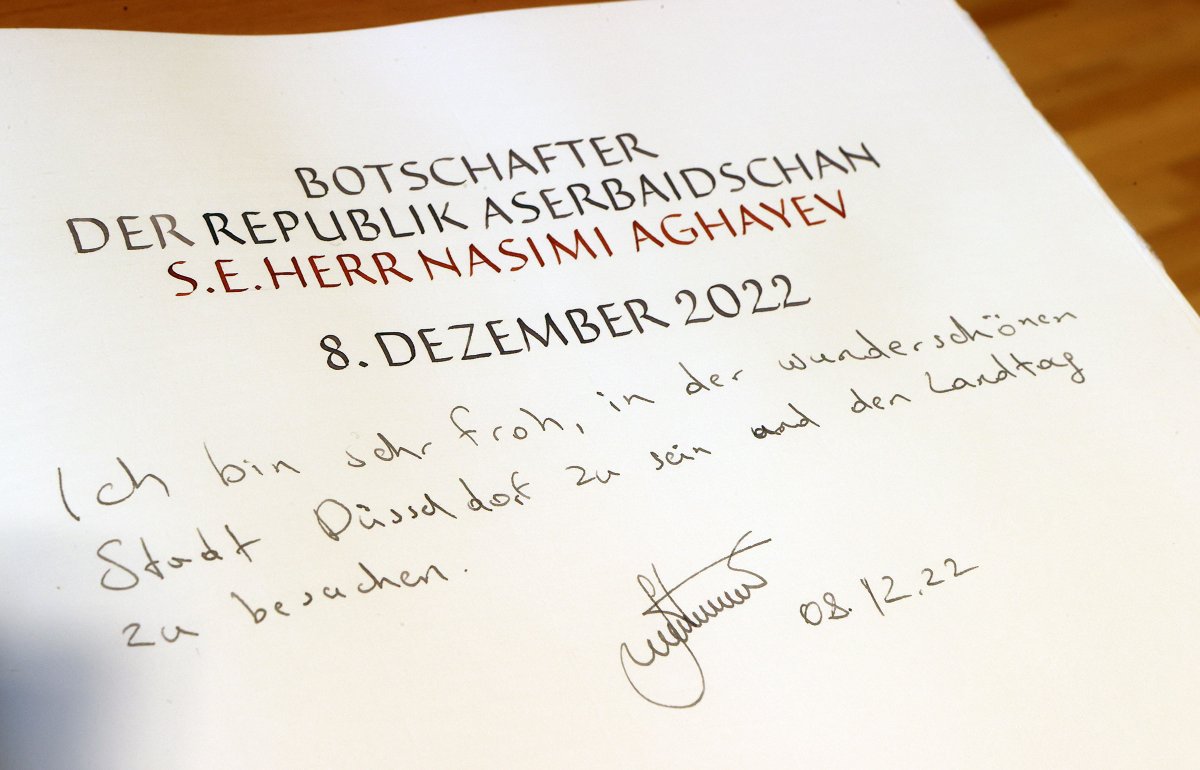 BOTSCHAFTER
DER REPUBLIK ASERBAIDSCHAN
S.E. HERR NASIMI AGHAYEV
8. DEZEMBER 2022
Ich bin sehr froh, in der wunderschönen
Stadt Düsseldorf zu sein und den Landtag
zu besuchen.
08.12.22